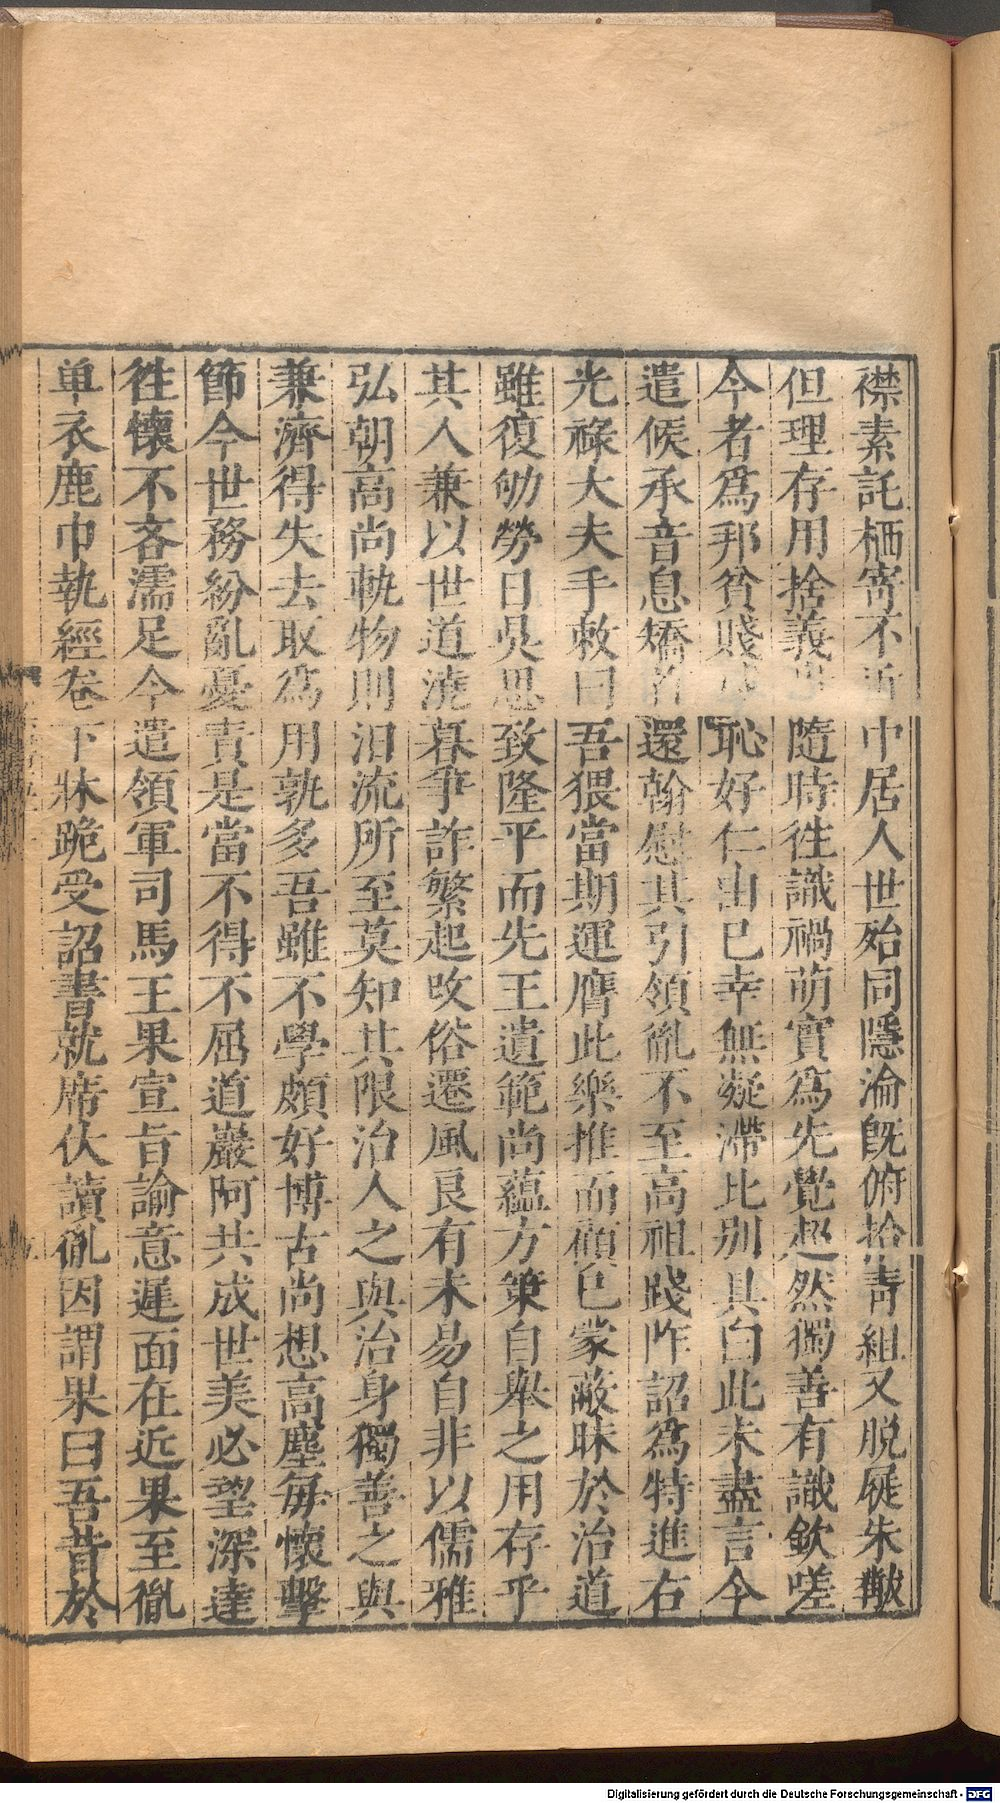 襟素託栖寄不近中居人世殆同隱淪旣俯拾靑組又脱屣朱黻
但理存用捨義思隨時徃識禍萌實爲先覺超然獨善有識欽嗟
今者爲邦貧賤恥好仁由已幸無凝滯比别具白此未盡言今
遣候承音息矯首還翰慰其引領胤不至高祖踐阼詔爲特進右
光祿大夫手敕曰吾猥當期運膺此樂推而顧已蒙蔽昧於治道
雖復劬勞日昃思致隆平而先王遺範尚蘊方策自舉之用存乎
其人兼以世道澆暮爭詐繁起攺俗遷風良有未易自非以儒雅
弘朝高尚軌物則汨流所至莫知其限治人之與治身獨善之與
兼濟得失去取爲用孰多吾雖不學頗好博古尚想高塵毎懷擊
節今世務紛亂憂責是當不得不屈道巖阿共成世美必望深達
徃懷不吝濡足今遣領軍司馬王果宣旨諭意遲面在近果至胤
单衣鹿巾執經卷下牀跪受詔書就席伏讀胤因謂果曰吾昔於
Digitalisierung gefördert durch die Deutsche Forschungsgemeinschaft - DFG